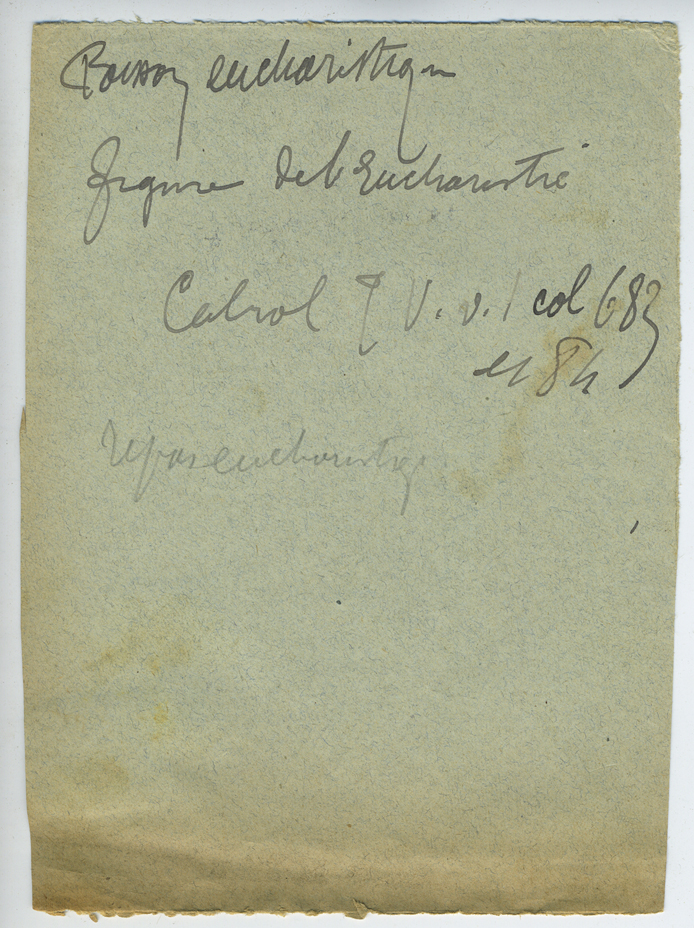 Poisson eucharistique
figure de l'Eucharistie
Cabrol T V. v. 1 col 683
et 84
Repas eucharistiq